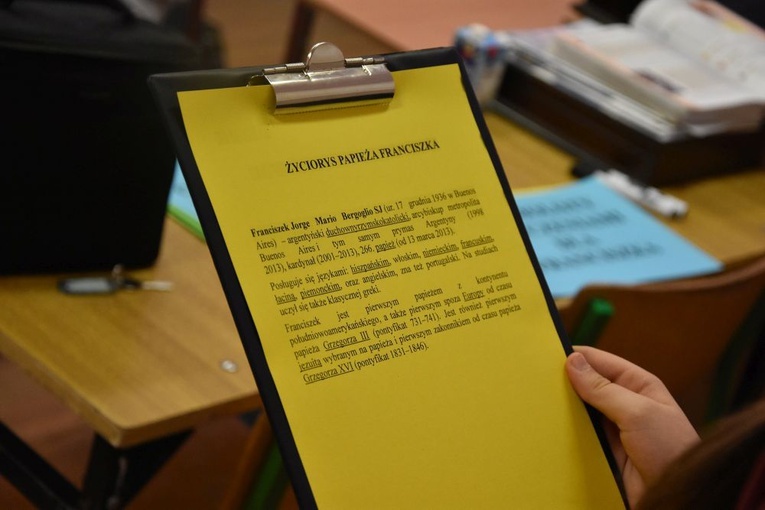 ŻYCIORYS PAPIEŻA FRANCISZKA
Franciszek Jorge Mario Bergoglio SJ (ur. 17 grudnia 1936 w Buenos
Aires) – argentyński duchownyrzymskokatolicki, arcybiskup metropolita
Buenos Aires i tym samym prymas Argentyny (1998
2013), kardynał (2001–2013), 266. papież (od 13 marca 2013).
Posługuje się językami: hiszpańskim, włoskim, niemieckim, francuskim,
łaciną, piemonckim, oraz angielskim, zna też portugalski. Na studiach
uczył się także klasycznej greki.
Franciszek jest pierwszym papieżem z kontynentu
południowoamerykańskiego, a także pierwszym spoza Europy od czasu
papieża Grzegorza III (pontyfikat 731–741). Jest również pierwszym
jezuitą wybranym na papieża i pierwszym zakonnikiem od czasu papieża
Grzegorza XVI (pontyfikat 1831–1846).